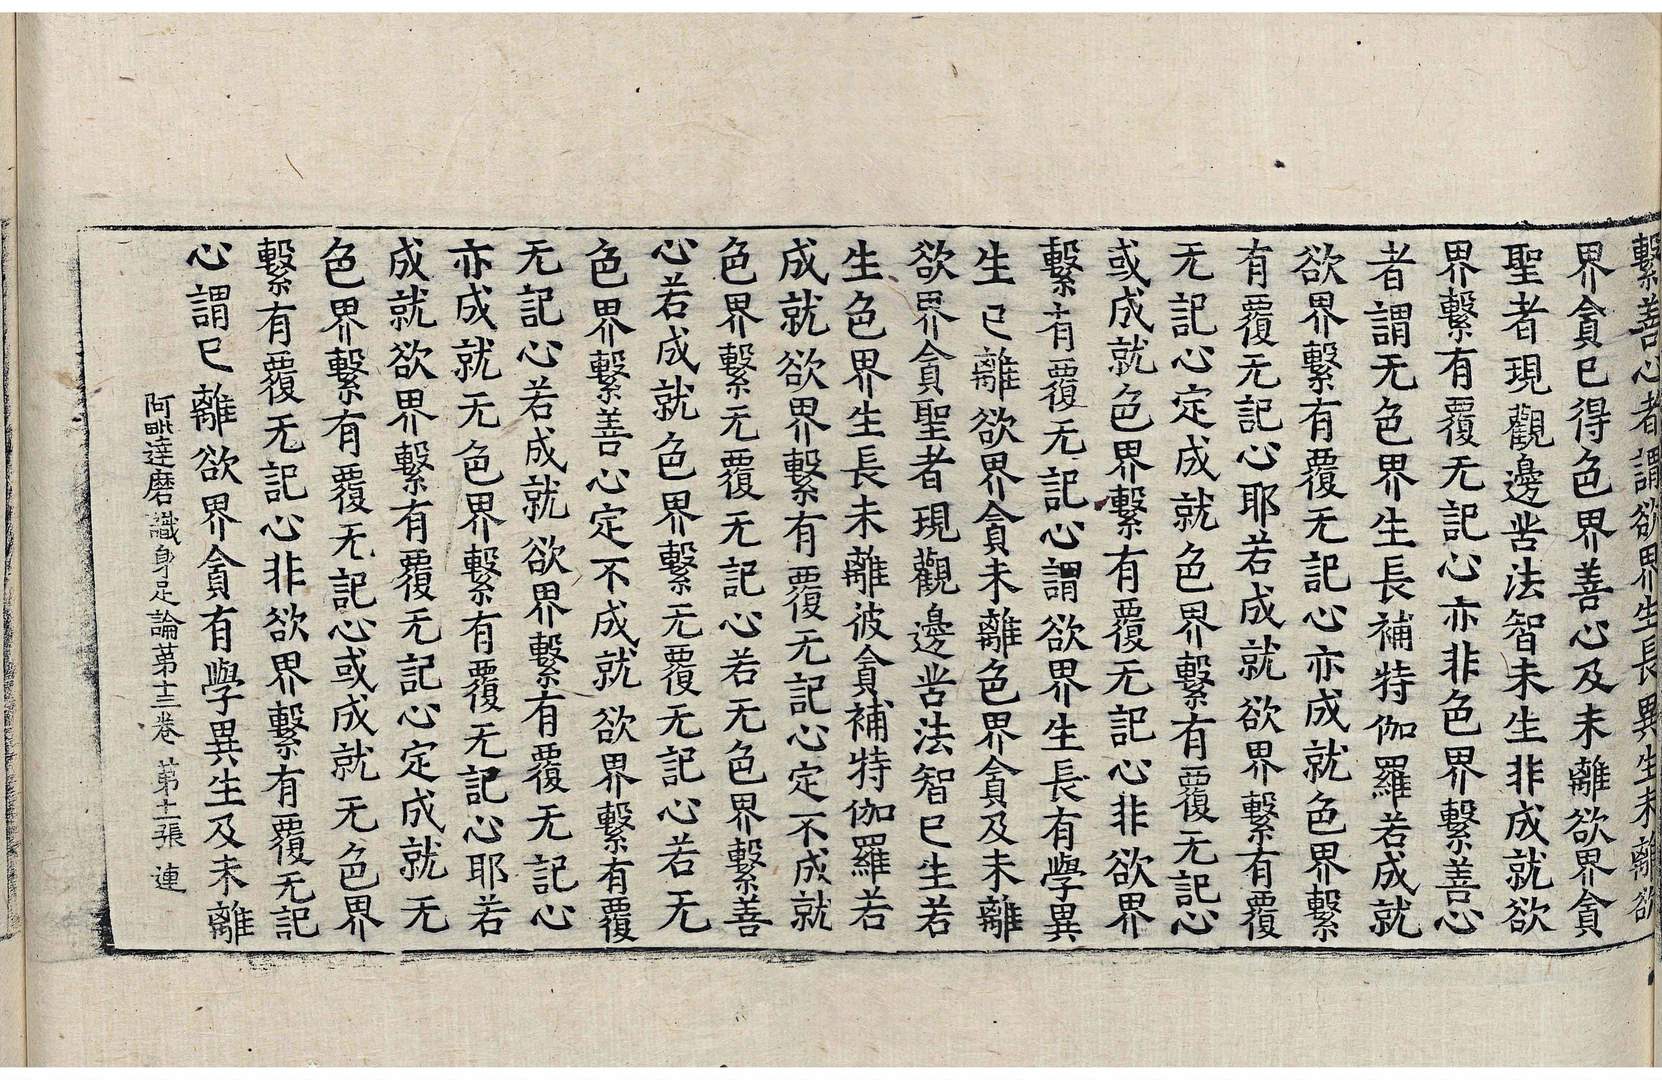 繫善心者謂欲界生長異生未離欲
界貪已得色界善心及未離欲界貪
聖者現觀邊苦法智未生非成就欲
界繫有覆无記心亦非色界繫善心
者謂无色界生長補特伽羅若成就
欲界繫有覆无記心亦成就色界繫
有覆无記心耶若成就欲界繫有覆
无記心定成就色界繫有覆无記心
或成就色界繫有覆无記心非欲界
繫有覆无記心謂欲界生長有學異
生已離欲界貪未離色界貪及未離
欲界貪聖者現觀邊苦法智已生若
生色界生長未離彼貪補特伽羅若
成就欲界繫有覆无記心定不成就
色界繫无覆无記心若无色界繫善
心若成就色界繫无覆无記心若无
色界繫善心定不成就欲界繫有覆
无記心若成就欲界繫有覆无記心
亦成就无色界繫有覆无記心耶若
成就欲界繫有覆无記心定成就无
色界繫有覆无記心或成就无色界
繫有覆无記心非欲界繫有覆无記
心謂已離欲界貪有學異生及未離
阿毗達磨識身足論第十三卷 第十一張 連